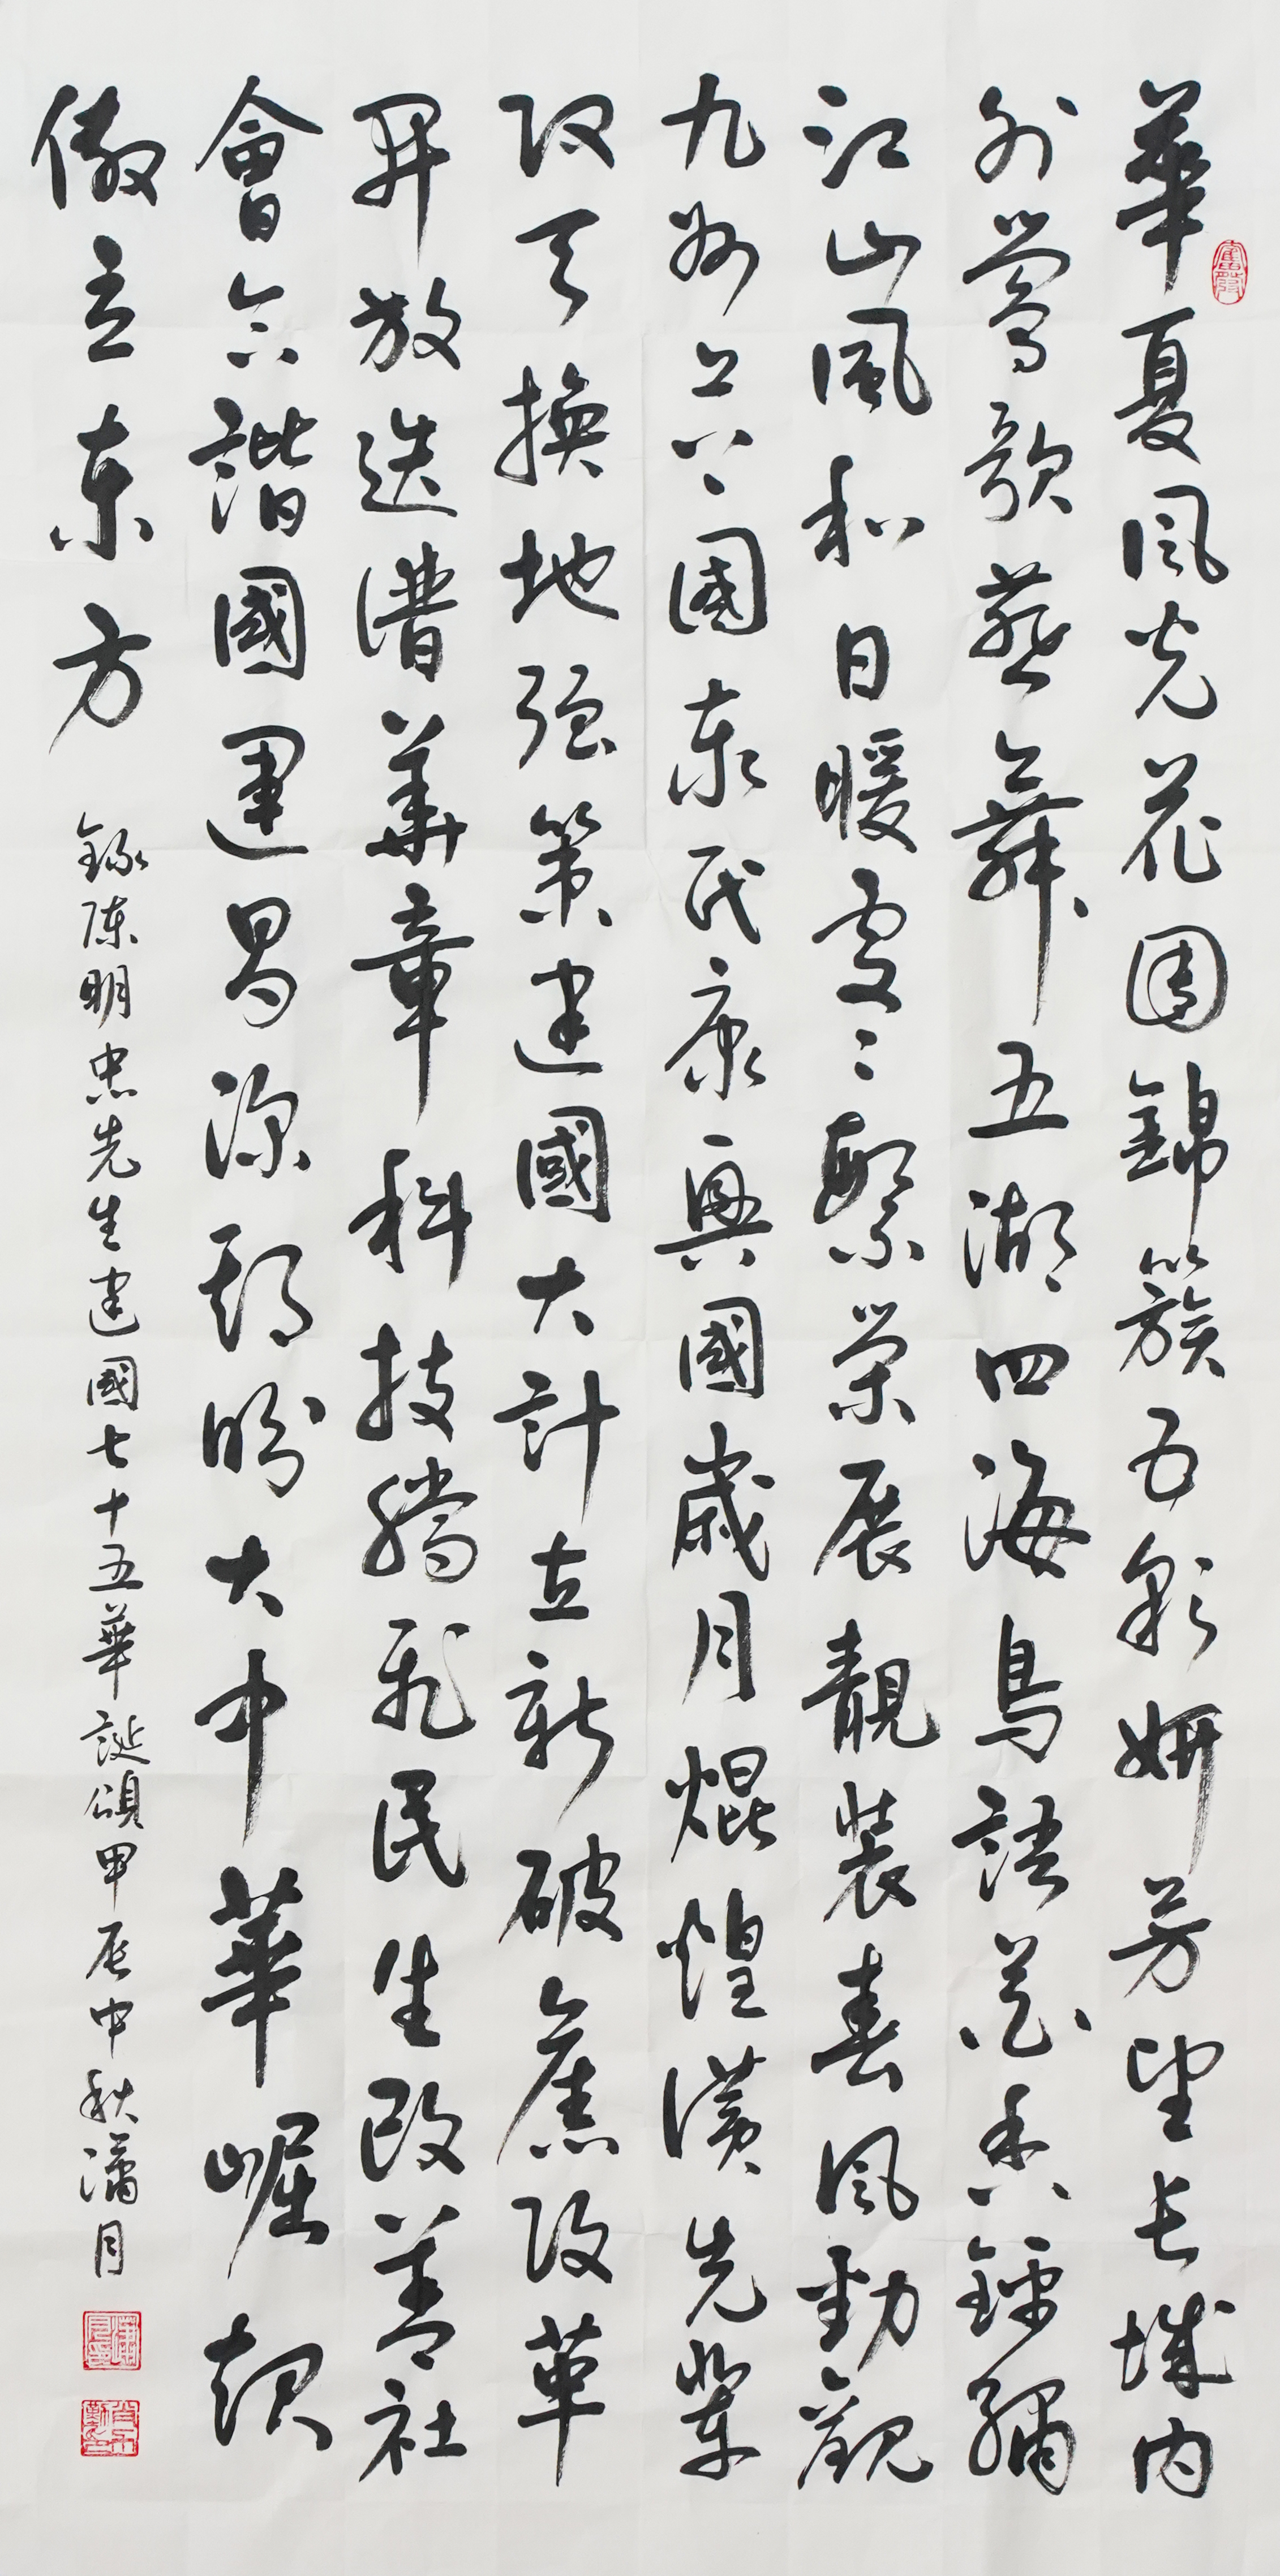 華夏風光花團錦簇五彩妍芳望長城內
外鶯歌燕舞五湖四海鳥語花香錦繡
江山風和日暖處々繁榮展靚裝春風勁觀
九州上下國泰民康興國歲月焜煌讚先輩
改天換地強策建國大計立新破舊改革
開放迭譜華章科技騰飛民生改善社
會和諧國運昌深期盼大中華崛起
傲立東方
錄陳明忠先生建國七十五華誕頌甲辰中秋瀟月